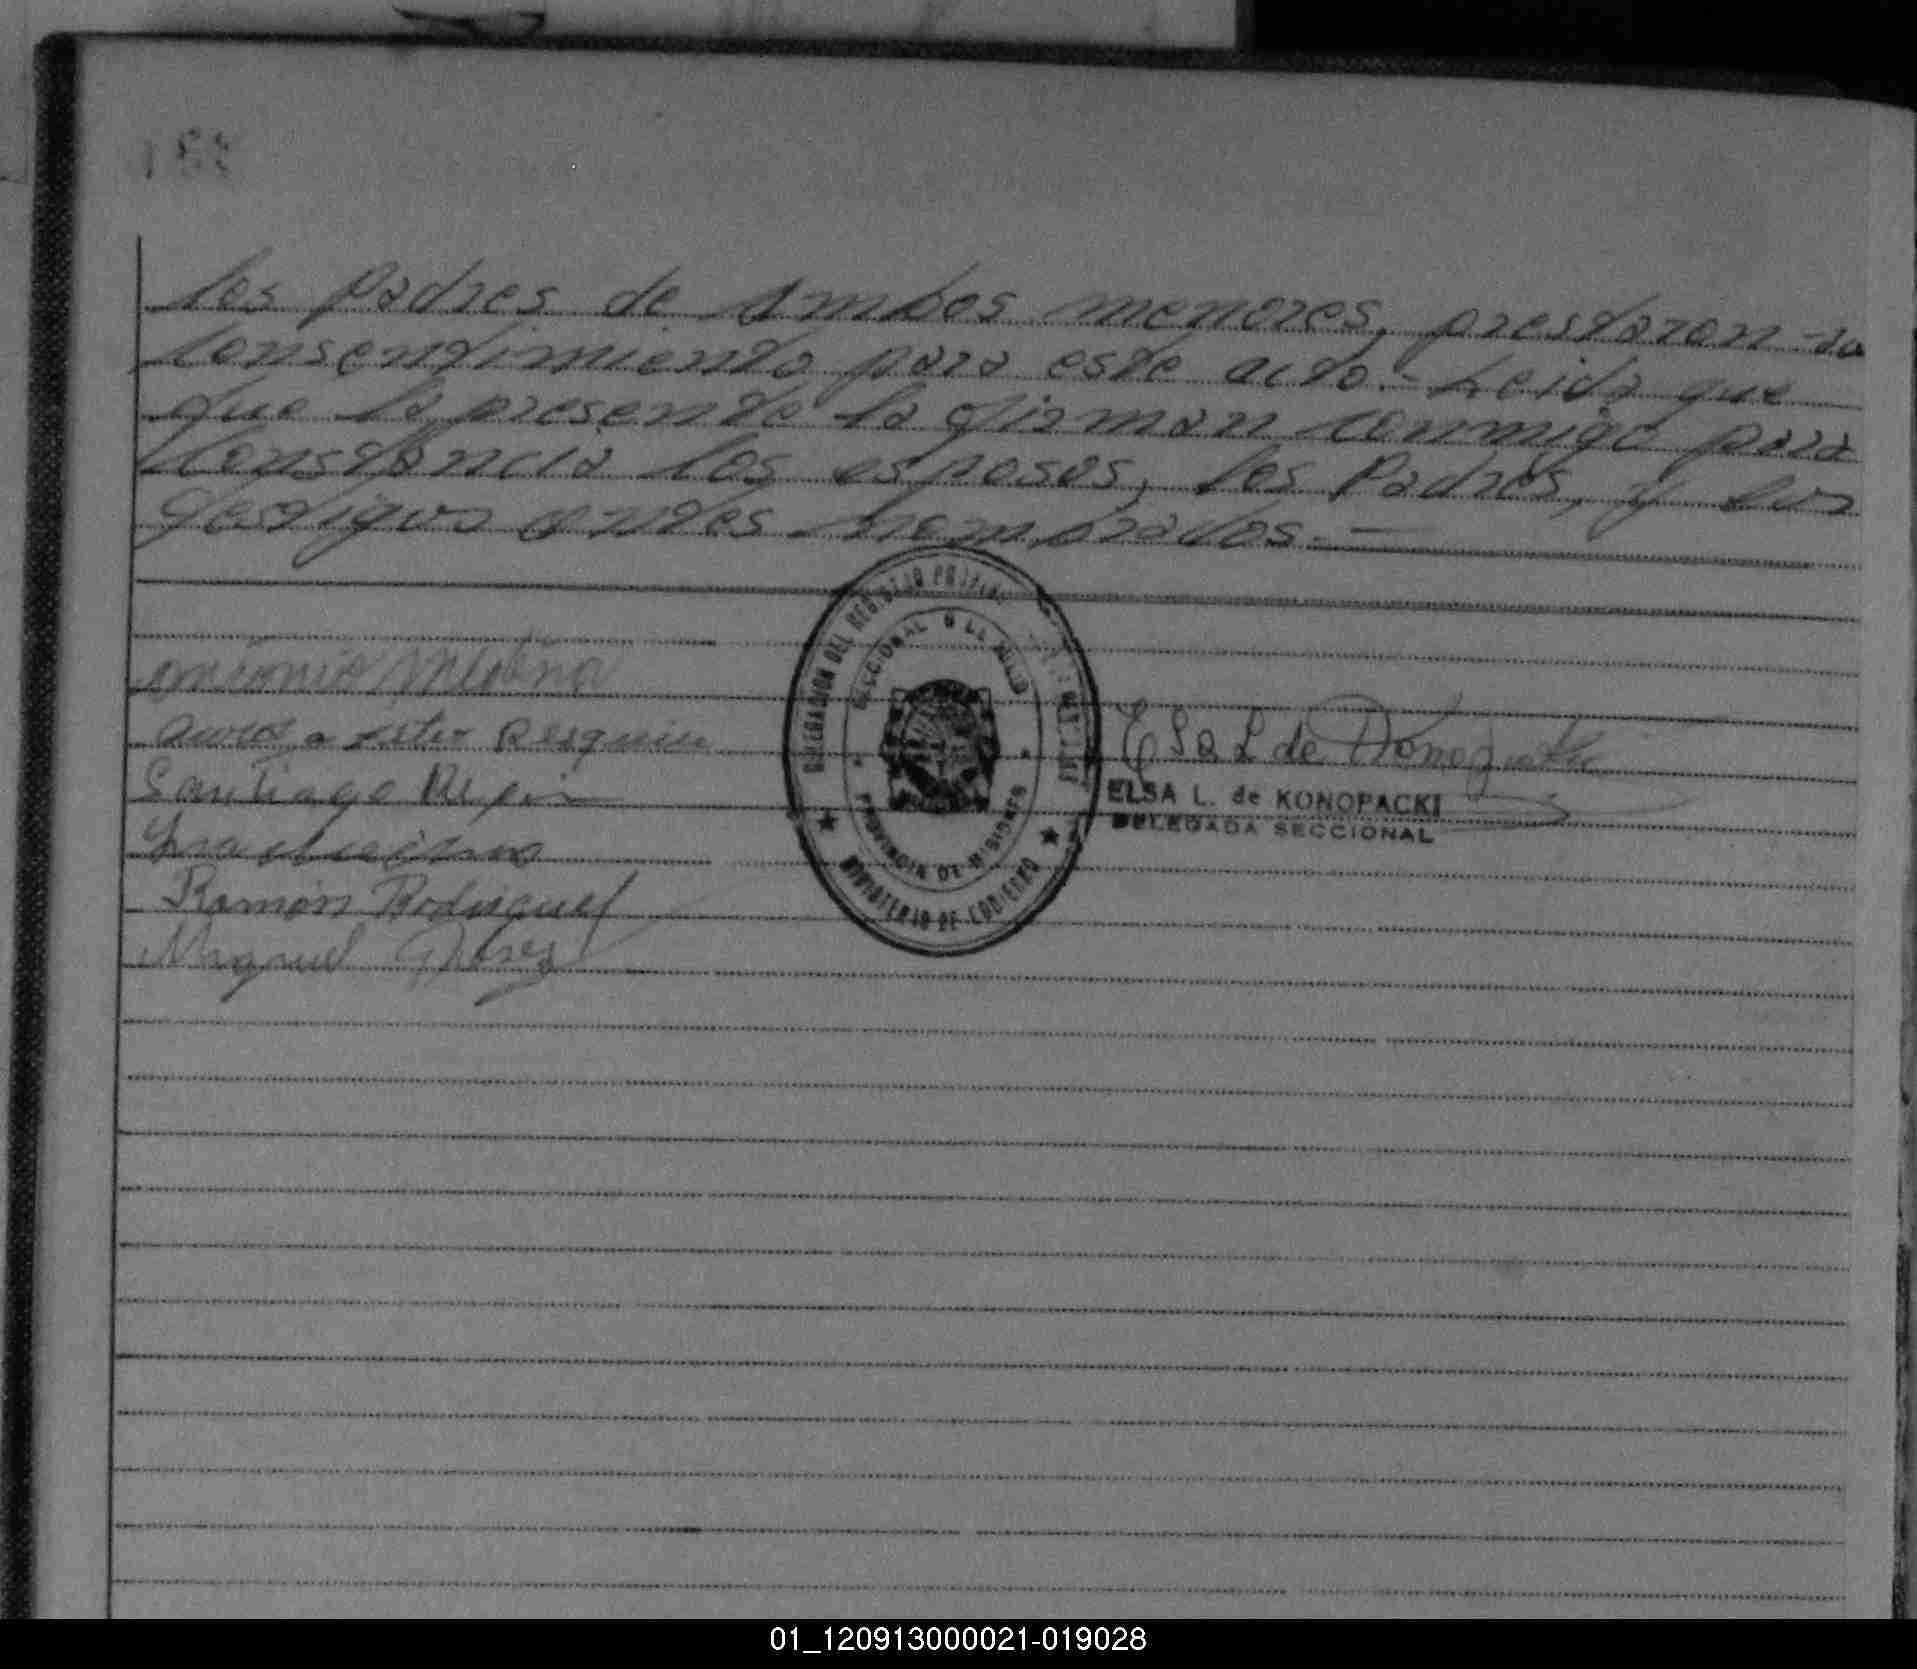 los padres de ambos menores, prestaron su
consentimiento para este acto.- Leida que
que la presente la firman conmigo para
constancia los esposos, los Padres, y los
testigos antes nombrados. -
antonio Molina
ester Resquin
Santiago
Ramón Rodriguez
Miguel
DELEGACION DEL REGISTRO PROVINCIAL
SECCIONAL
PROVINCIA DE MISIONES
MINISTERIO DE GOBIERNO
Elsa L de Konopacki
ELSA L. de KONOPACKI
DELEGADA SECCIONAL
01_120913000021-019028